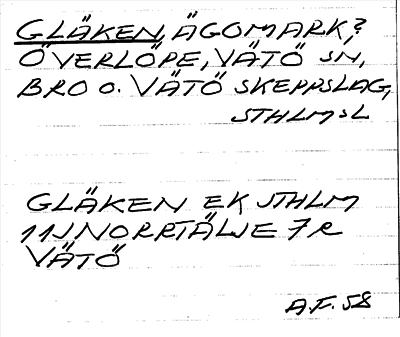 GLÄKEN, ÄGOMARK?
ÖVERLÖPE, VÄTÖ SN,
BRO O. VÄTÖ SKEPPSLAG,
STHLMSL
GLÄKEN EK STHLM
11J NORRTÄLJE 7R
VÄTÖ
A.F. 58